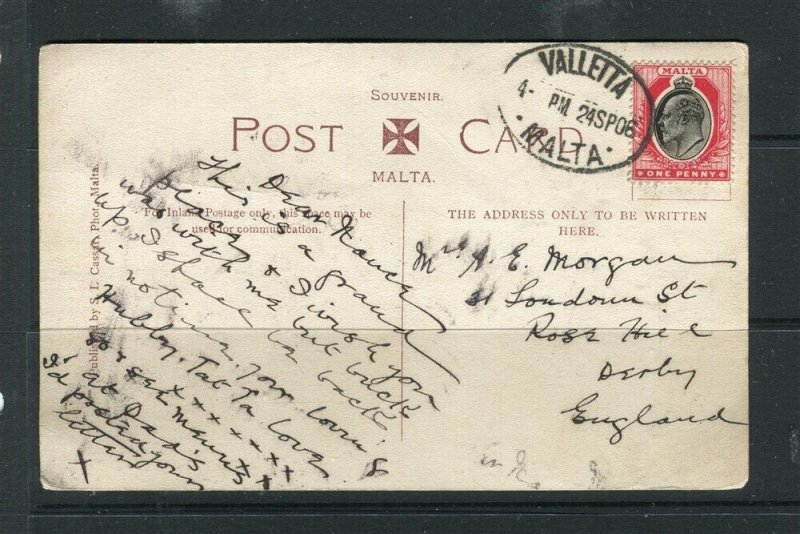 SOUVENIR.
POST CARD
MALTA.
For Inland Postage only, this space may be used for communication.
THE ADDRESS ONLY TO BE WRITTEN HERE.
Published by S. L. Cassar, Photo, Malta.
VALLETTA
4- PM 24SP06
MALTA
MALTA
ONE PENNY
Dear
This is a grand
place & I wish you
was with me but buck
up I shall be back
in no time, Your lovin'g
Hubby. Tat Ta love
x x x x x x
at Dad's
x
Mrs A. E. Morgan
21 Loudoun St
Rose Hill
Derby
England